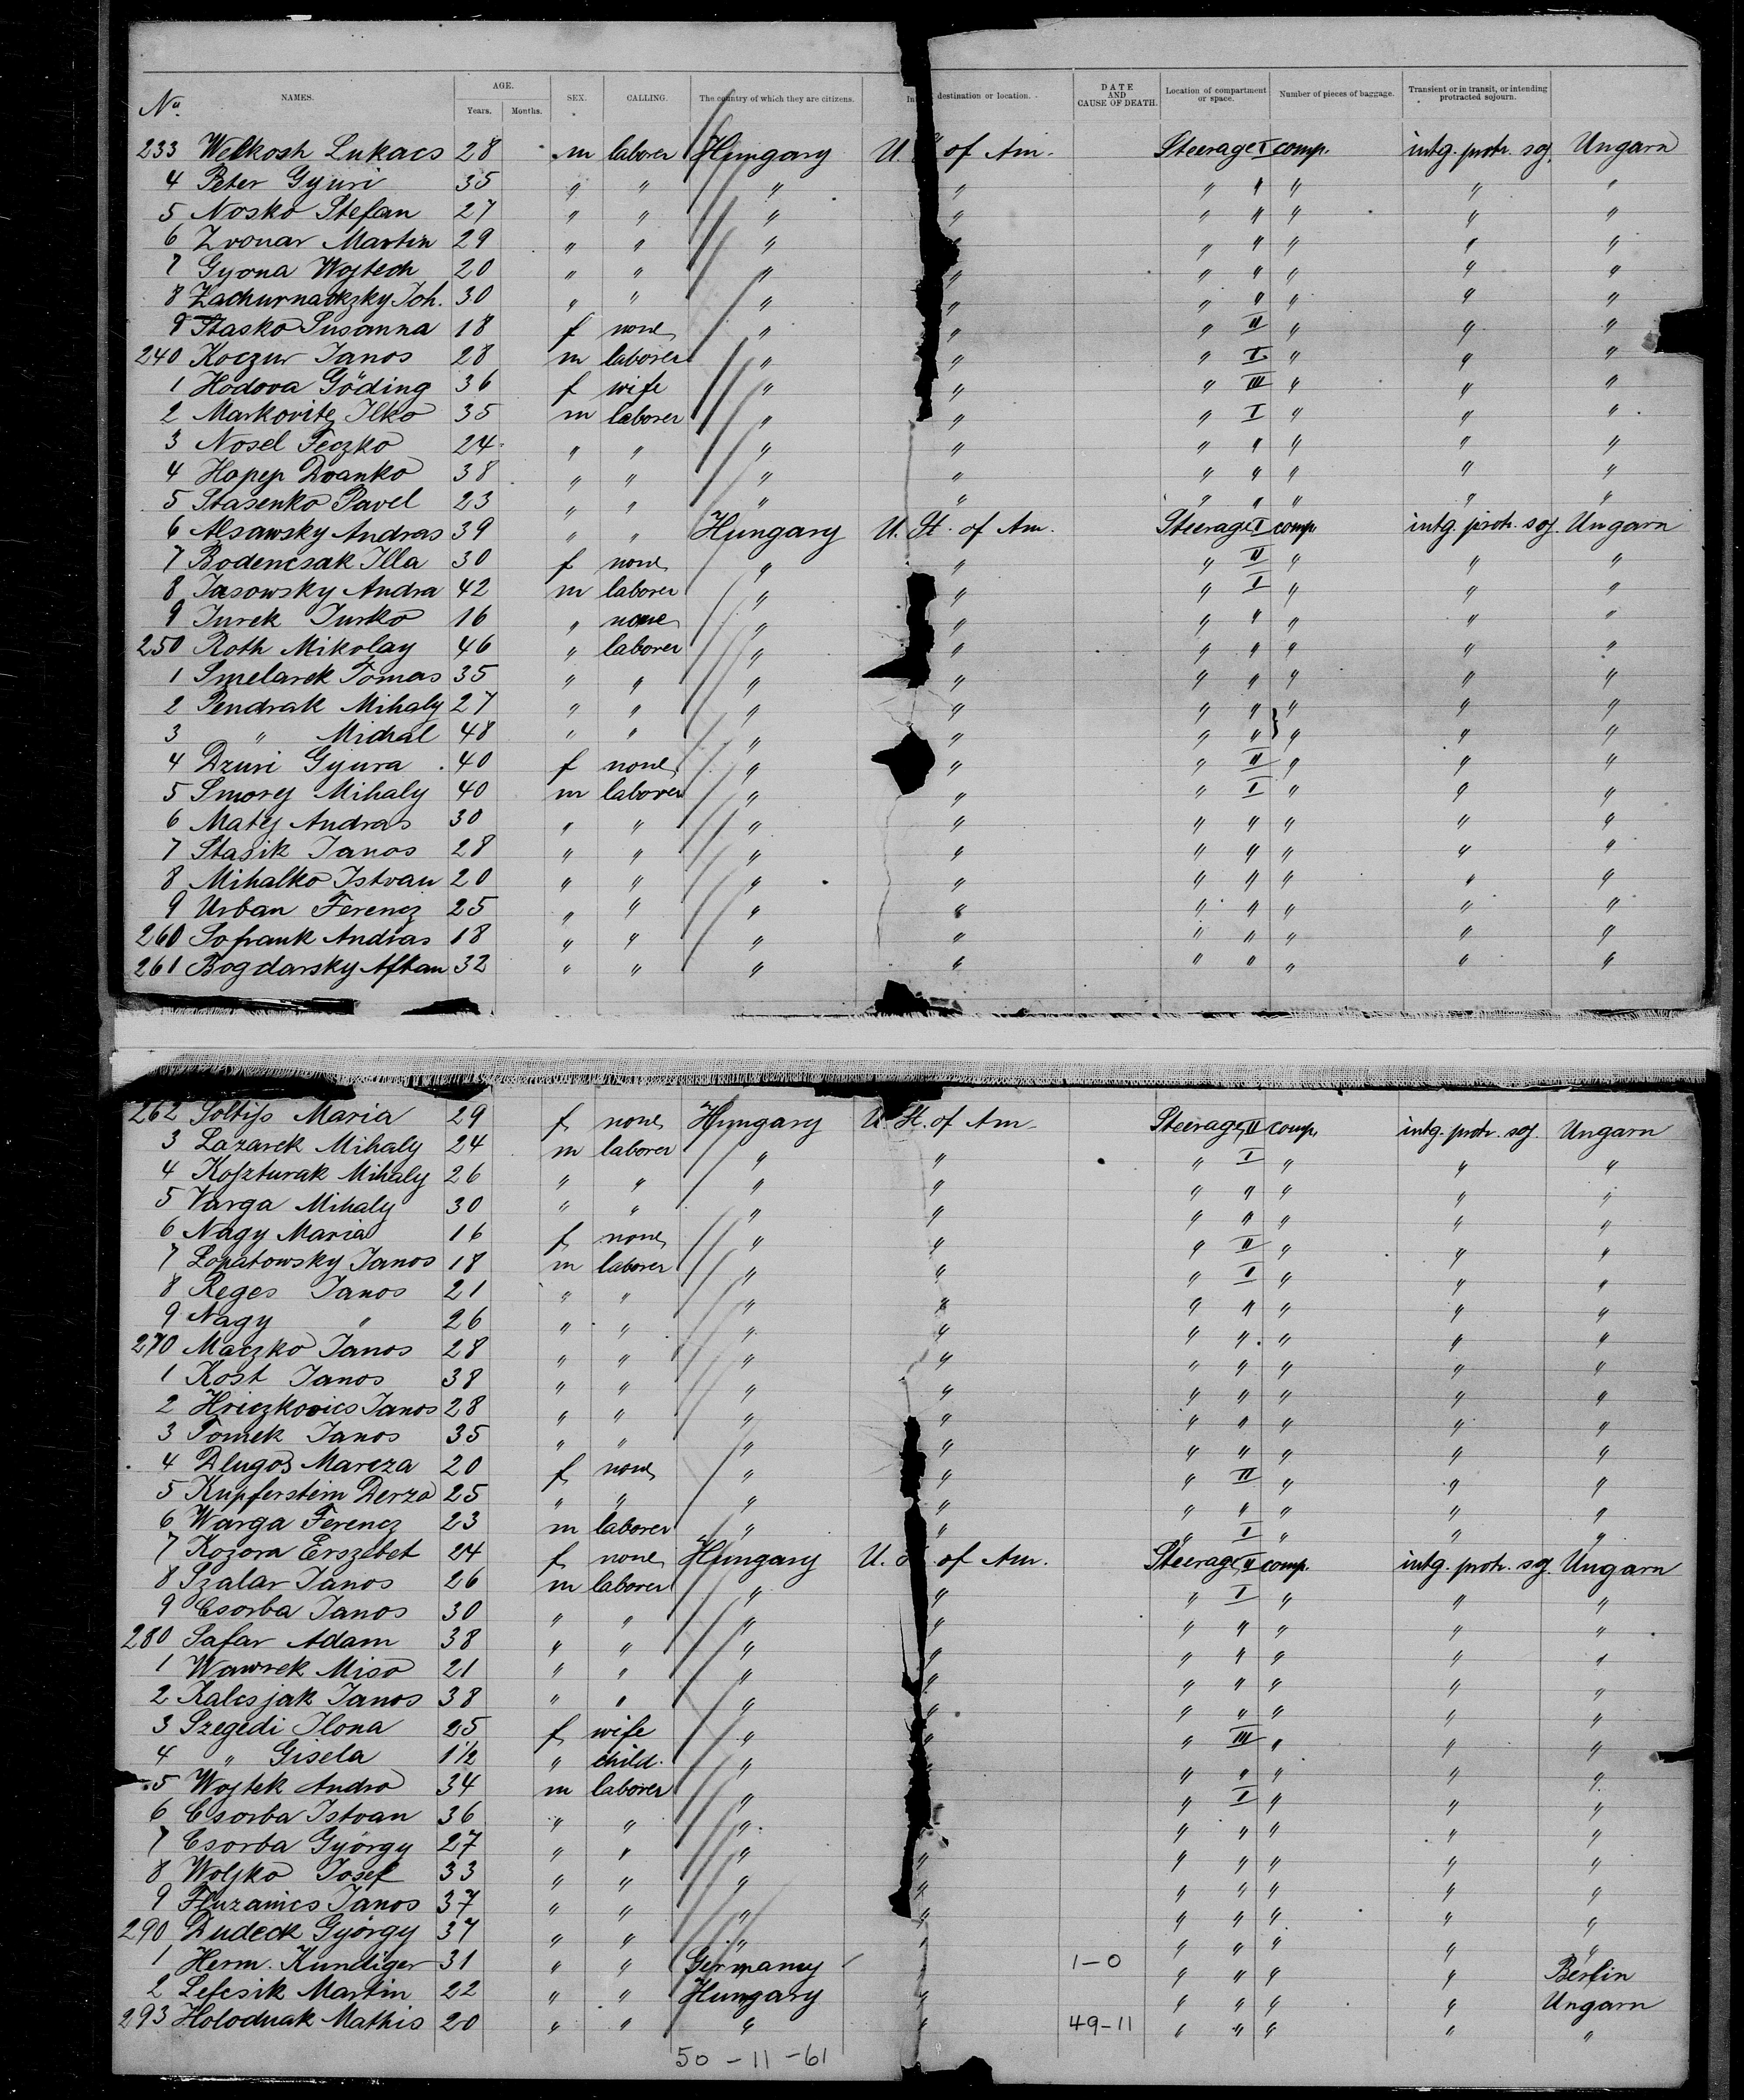 No. NAMES. AGE. Years. Months. SEX. CALLING. The country of which they are citizens. destination or location. DATE AND CAUSE OF DEATH. Location of compartment or space. Number of pieces of baggage. Transient or in transit, or intending protracted sojourn.
233 Welkosh Lukacs 28 m laborer Hungary U. of Am. Steerage I comp. intg. protr. soj. Ungarn
4 Peter Gyuri 35 " " " " " " " " "
5 Nosko Stefan 27 " " " " " " " " "
6 Zvonar Martin 29 " " " " " " " " "
7 Gyona Wojtech 20 " " " " " " " " "
8 Joh. 30 " " " " " " " " "
9 Stasko Susanna 18 f none " " " II " " "
240 Koczur Janos 28 m laborer " " " I " " "
1 Hodova Göding 36 f wife " " " III " " "
2 Markovitz Ilko 35 m laborer " " " I " " "
3 Nosel Feczko 24 " " " " " " " " "
4 Hapep Dvanko 38 " " " " " " " " "
5 Stasenko Pavel 23 " " " " " " " " "
6 Alsawsky Andras 39 " " Hungary U. St. of Am. Steerage I comp. intg. protr. soj. Ungarn
7 Bodencsak Illa 30 f none " " " II " " "
8 Jasowsky Andra 42 m laborer " " " I " " "
9 Jurek Jurko 16 " none " " " " " " "
250 Roth Mikolay 46 " laborer " " " " " " "
1 Smelarek Tomas 35 " " " " " " " " "
2 Pendrak Mihaly 27 " " " " " " " " "
3 " Michal 48 " " " " " " " " "
4 Dzuri Gyura 40 f none " " " II " " "
5 Smorej Mihaly 40 m laborer " " " I " " "
6 Matej Andras 30 " " " " " " " " "
7 Stasik Janos 28 " " " " " " " " "
8 Mihalko Istvan 20 " " " " " " " " "
9 Urban Ferencz 25 " " " " " " " " "
260 Sofrank Andras 18 " " " " " " " " "
261 Bogdarsky Aftan 32 " " " " " " " " "
262 Soltiss Maria 29 f none Hungary U. St. of Am. Steerage II comp. intg. protr. soj. Ungarn
3 Lazarek Mihaly 24 m laborer " " " I " " "
4 Koszturak Mihaly 26 " " " " " " " " "
5 Varga Mihaly 30 " " " " " " " " "
6 Nagy Maria 16 f none " " " II " " "
7 Lopatowsky Janos 18 m laborer " " " I " " "
8 Reges Janos 21 " " " " " " " " "
9 Nagy " 26 " " " " " " " " "
270 Maczko Janos 28 " " " " " " " " "
1 Kost Janos 38 " " " " " " " " "
2 Hriczkovics Janos 28 " " " " " " " " "
3 Tomek Janos 35 " " " " " " " " "
4 Dlugos Marcza 20 f none " " " II " " "
5 Kupferstein Derza 25 " " " " " " " " "
6 Warga Ferencz 23 m laborer " " " I " " "
7 Kozora Erszebet 24 f none Hungary U. of Am. Steerage II comp. intg. protr. soj. Ungarn
8 Szalar Janos 26 m laborer " " " I " " "
9 Csorba Janos 30 " " " " " " " " "
280 Safar Adam 38 " " " " " " " " "
1 Wawrek Miso 21 " " " " " " " " "
2 Kalcsjak Janos 38 " " " " " " " " "
3 Szegedi Ilona 25 f wife " " " III " " "
4 " Gisela 1 1/2 " child. " " " " " " "
5 Wojtek Andro 34 m laborer " " " I " " "
6 Csorba Istvan 36 " " " " " " " " "
7 Csorba György 27 " " " " " " " " "
8 Woljko Josef 33 " " " " " " " " "
9 Janos 37 " " " " " " " " "
290 Dudeck György 37 " " " " " " " " "
1 Herm. Kundiger 31 " " Germany " 1-0 " " " " Berlin
2 Lefcsik Martin 22 " " Hungary " " " " " Ungarn
293 Holodnak Mathis 20 " " " " 49-11 " " " " "
50-11-61